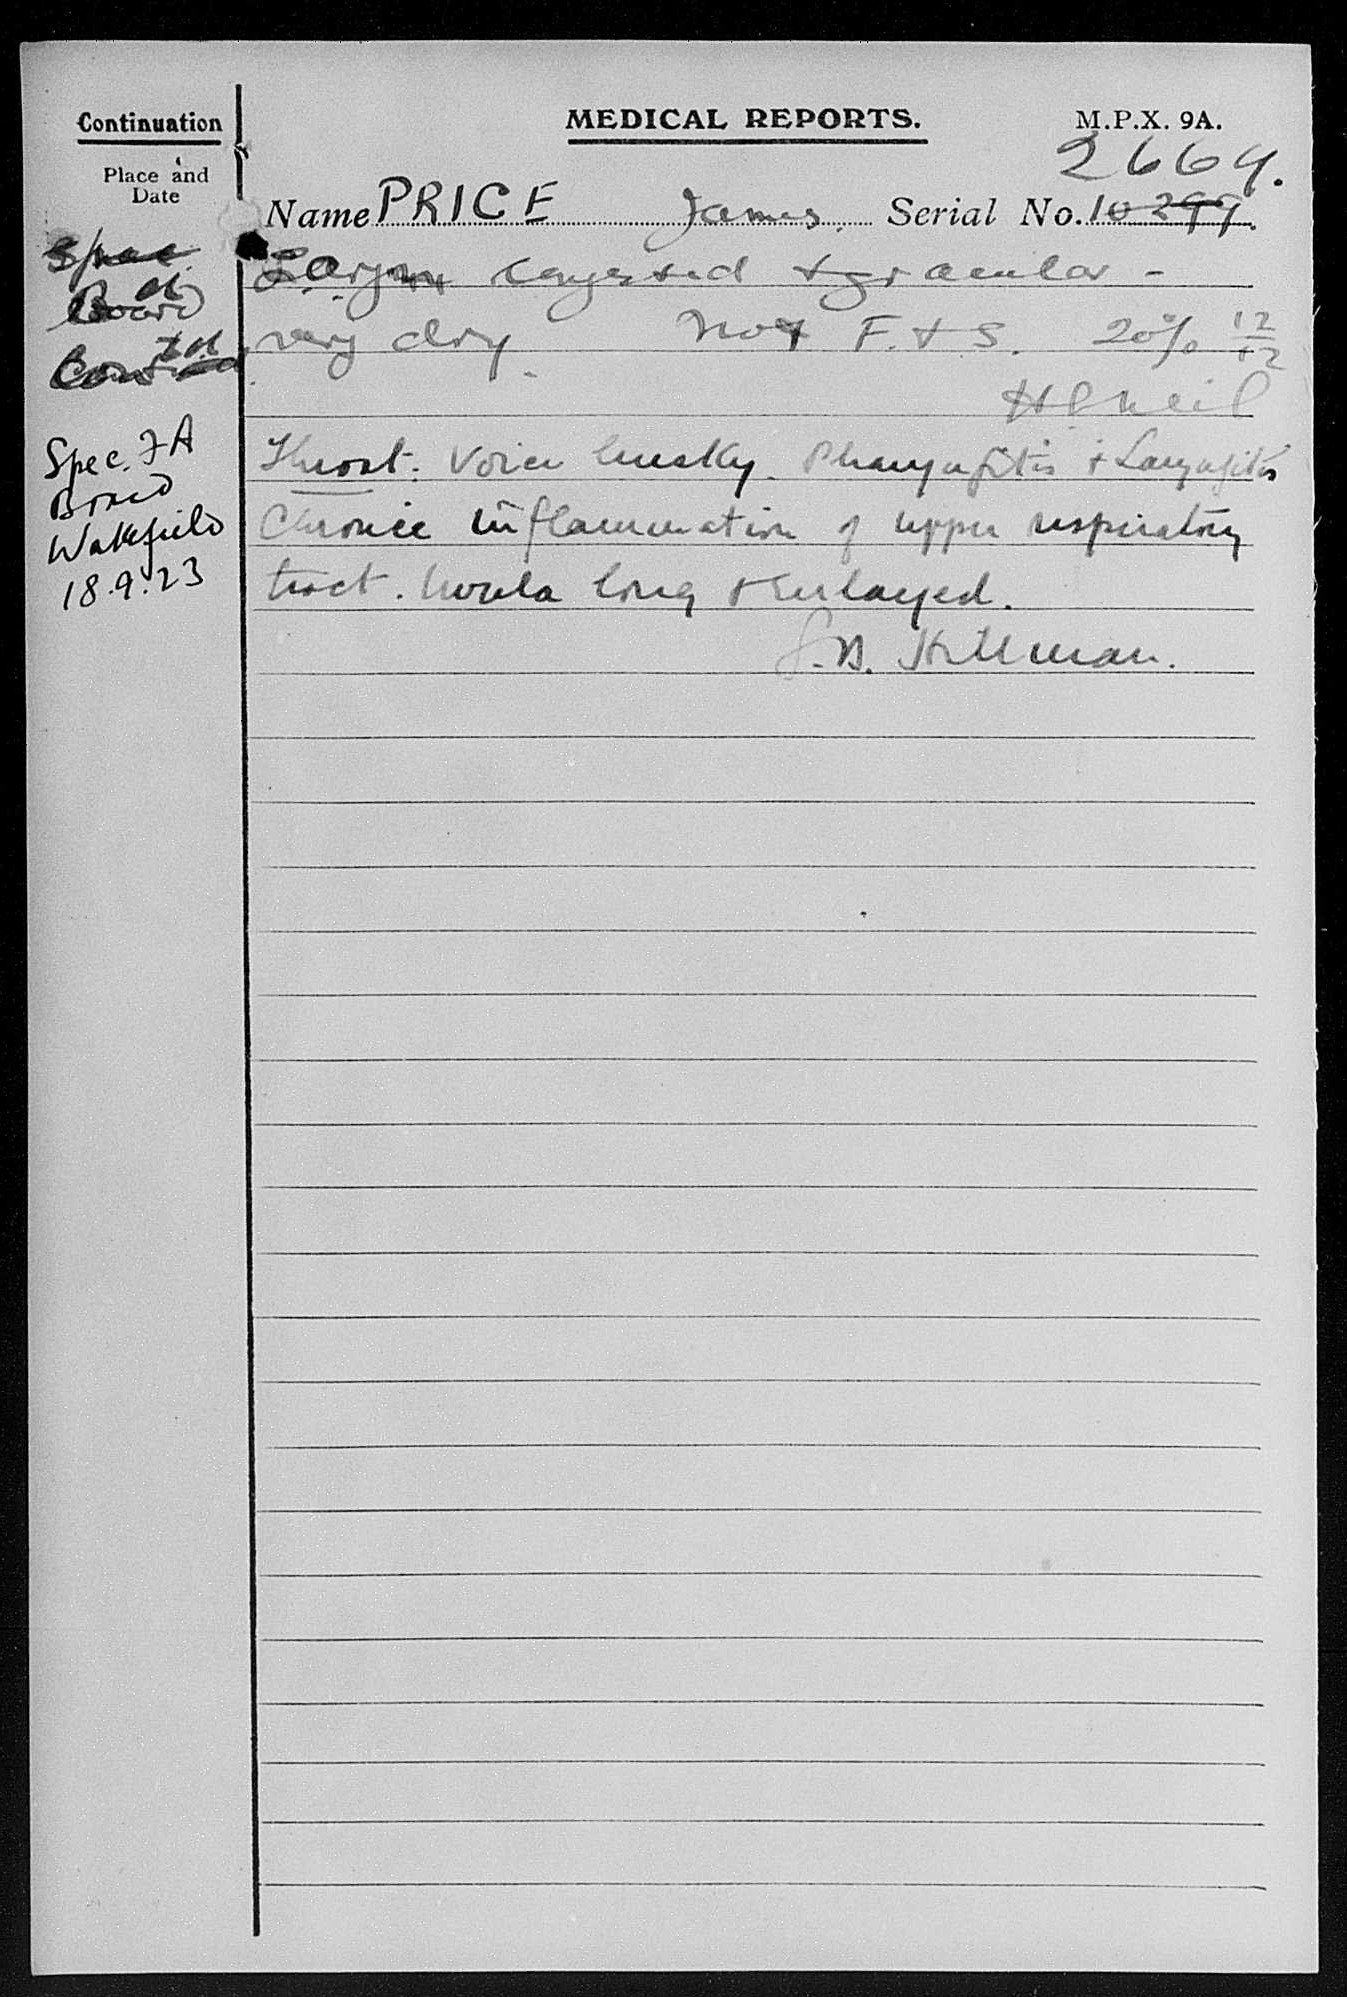 Continuation
MEDICAL REPORTS.
M.P.X. 9A.
Place and
Date
2664.
Name PRICE James. Serial No. 10299.
Spec
Board
Contd
Larynx congested & granular -
very dry. Not F. & S. 20% 12/52
H O Neil
Spec. F A
Board
Wakefield
18.9.23
Throat. Voice husky. Pharyngitis & Laryngitis
Chronic inflammation of upper respiratory
tract. Uvula long & enlarged.
S.B. Hillman.